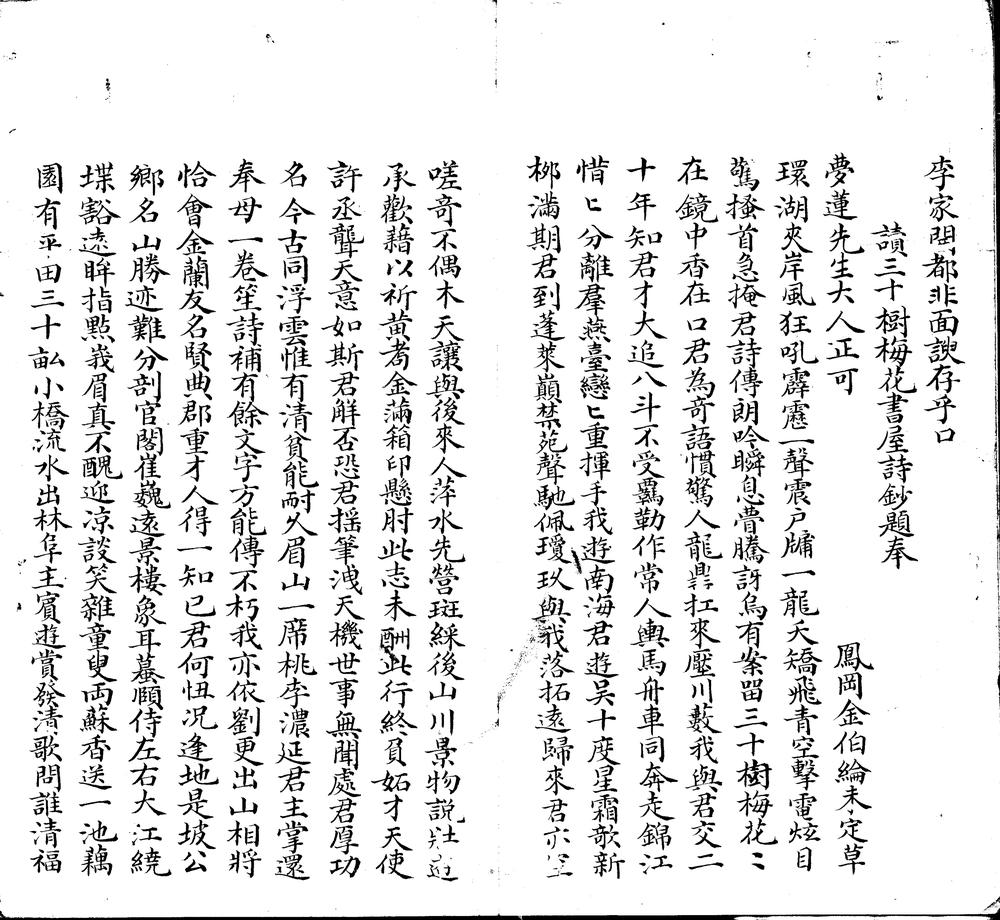 李家閏都非面諛存乎口
讀三十樹梅花書屋詩鈔題奉
夢蓮先生大人正可
鳳岡金伯綸未定草
環湖夾岸風狂吼霹靂一聲震戶牖一龍夭矯飛青空擊電炫目
驚搔首急掩君詩傳朗吟瞬息瞢騰訝烏有案留三十樹梅花〻
在鏡中香在口君為奇語慣驚人龍鼎扛來壓川藪我與君交二
十年知君才大追八斗不受羈勒作常人輿馬舟車同奔走錦江
惜〻分離羣燕臺戀〻重揮手我遊南海君遊吴十度星霜歌新
柳滿期君到蓬萊巔禁苑聲馳佩瓊玖與我落拓遠歸來君亦
嗟奇不偶木天讓與後來人萍水先營斑綵後山川景物説壯遊
承歡藉以祈黃耇金滿箱印懸肘此志未酬此行終負妬才天使
許丞聾天意如斯君解否恐君揺筆洩天機世事無聞處君厚功
名今古同浮雲惟有清貧能耐久眉山一席桃李濃延君主掌還
奉母一卷笙詩補有餘文字方能傳不朽我亦依劉更出山相將
恰會金蘭友名賢典郡重才人得一知己君何忸况逢地是坡公
鄉名山勝迹難分剖官閣崔巍遠景樓象耳蟇頤侍左右大江繞
堞豁遠眸指點峩眉真不醜迎凉談笑雜童叟両蘇香送一池藕
園有平田三十畝小橋流水出林阜主賓遊賞發清歌問誰清福